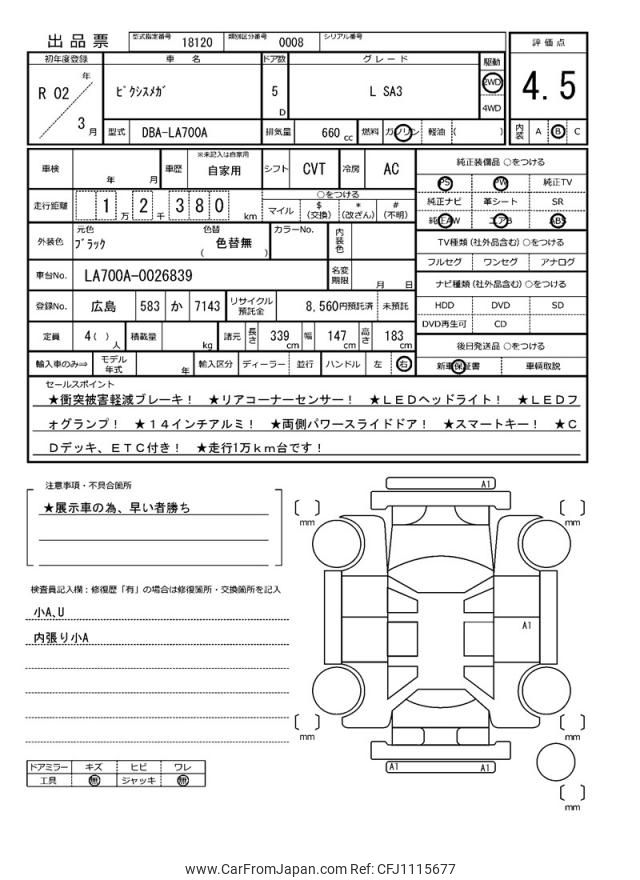 出品票 型式指定番号 18120 類別区分番号 0008 シリアル番号
初年度登録 車名 ドア数 グレード 駆動 評価点
R 02 年 3 月 ﾋﾟｸｼｽﾒｶﾞ 5 D L SA3 2WD 4WD 4.5
型式 DBA-LA700A 排気量 660 cc 燃料 ガソリン 軽油 ( ) 内装 A B C
車検 年 月 車歴 ※未記入は自家用 自家用 シフト CVT 冷房 AC 純正装備品 ○をつける
PS PW 純正TV
走行距離 1 万 2 千 3 8 0 km ○をつける 純正ナビ 革シート SR
マイル $(交換) *(改ざん) #(不明) 純正AW エアB ABS
外装色 元色 ﾌﾞﾗｯｸ 色替 色替無 ( ) カラーNo. 内装色 TV種類 (社外品含む) ○をつける
フルセグ ワンセグ アナログ
車台No. LA700A-0026839 名変期限 月 日 ナビ種類 (社外品含む) ○をつける
登録No. 広島 583 か 7143 リサイクル預託金 8,560円預託済 未預託 HDD DVD SD
DVD再生可 CD
定員 4( ) 人 積載量 kg 諸元 長さ 339 cm 幅 147 cm 高さ 183 cm 後日発送品 ○をつける
輸入車のみ⇒ モデル年式 年 輸入区分 ディーラー 並行 ハンドル 左 右 新車保証書 車輌取説
セールスポイント
★衝突被害軽減ブレーキ！ ★リアコーナーセンサー！ ★ＬＥＤヘッドライト！ ★ＬＥＤフ
ォグランプ！ ★１４インチアルミ！ ★両側パワースライドドア！ ★スマートキー！ ★Ｃ
Ｄデッキ、ＥＴＣ付き！ ★走行1万ｋｍ台です！
注意事項・不具合箇所
★展示車の為、早い者勝ち
検査員記入欄：修復歴「有」の場合は修復箇所・交換箇所を記入
小A､U
内張り小A
ドアミラー キズ ヒビ ワレ
工具 無 ジャッキ 無
A1
mm mm
A1
mm mm
A1 A1
mm
www.CarFromJapan.com Ref: CFJ1115677